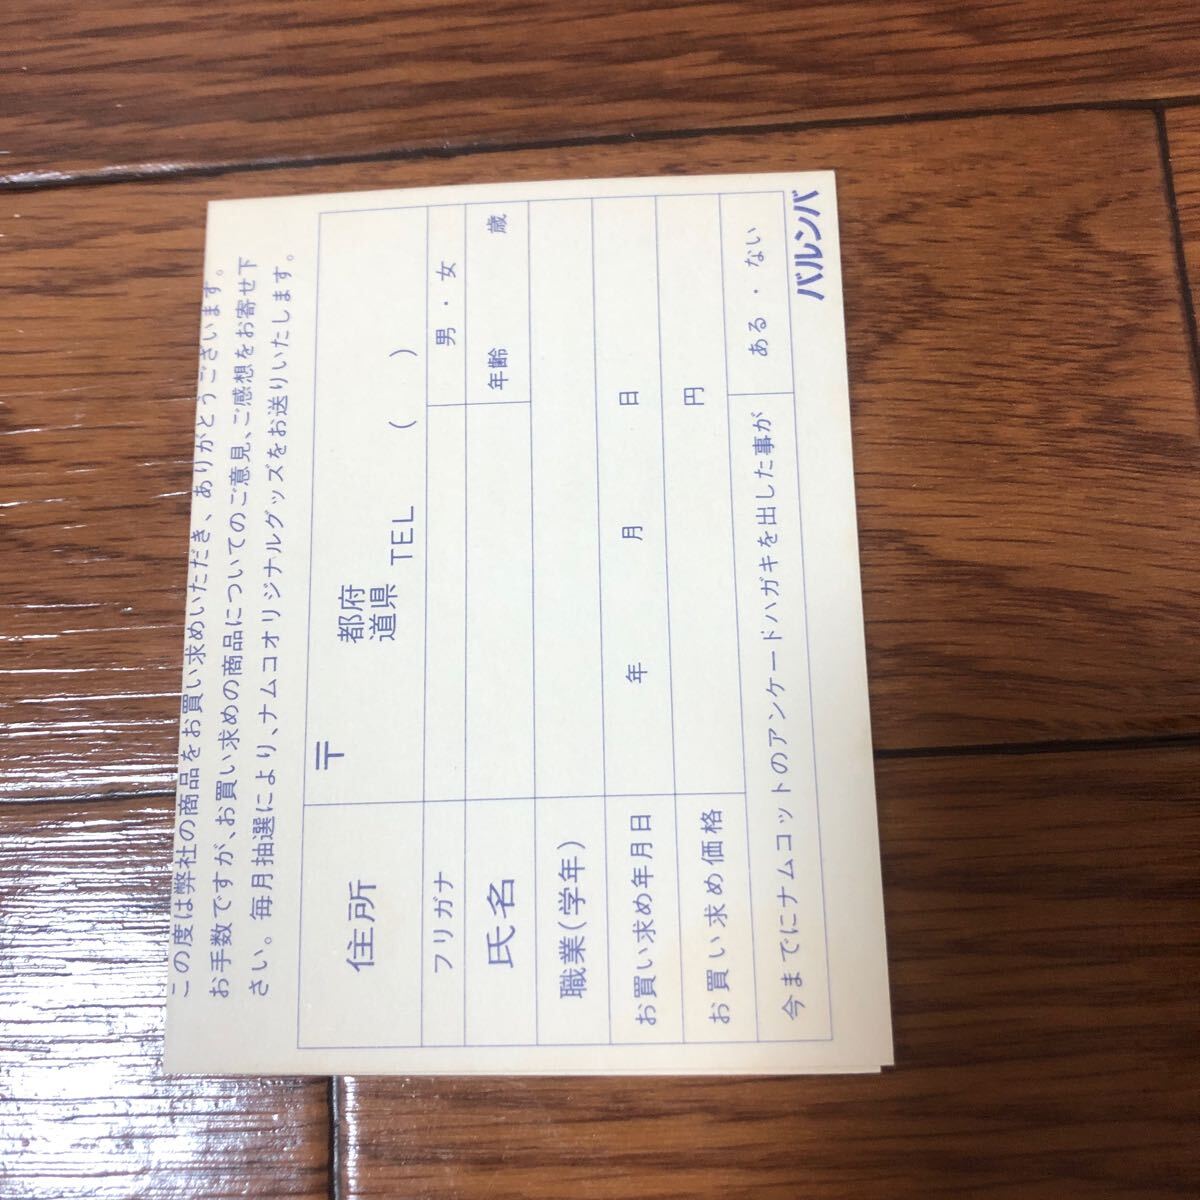 この度は弊社の商品をお買い求めいただき、ありがとうございます。
お手数ですが、お買い求めの商品についてのご意見、ご感想をお寄せ下
さい。毎月抽選により、ナムコオリジナルグッズをお送りいたします。
住所
〒
都府
道県
TEL ( )
フリガナ
男・女
氏名
年齢 歳
職業(学年)
お買い求め年月日
年 月 日
お買い求め価格
円
今までにナムコットのアンケードハガキを出した事が
ある・ない
バルンバ